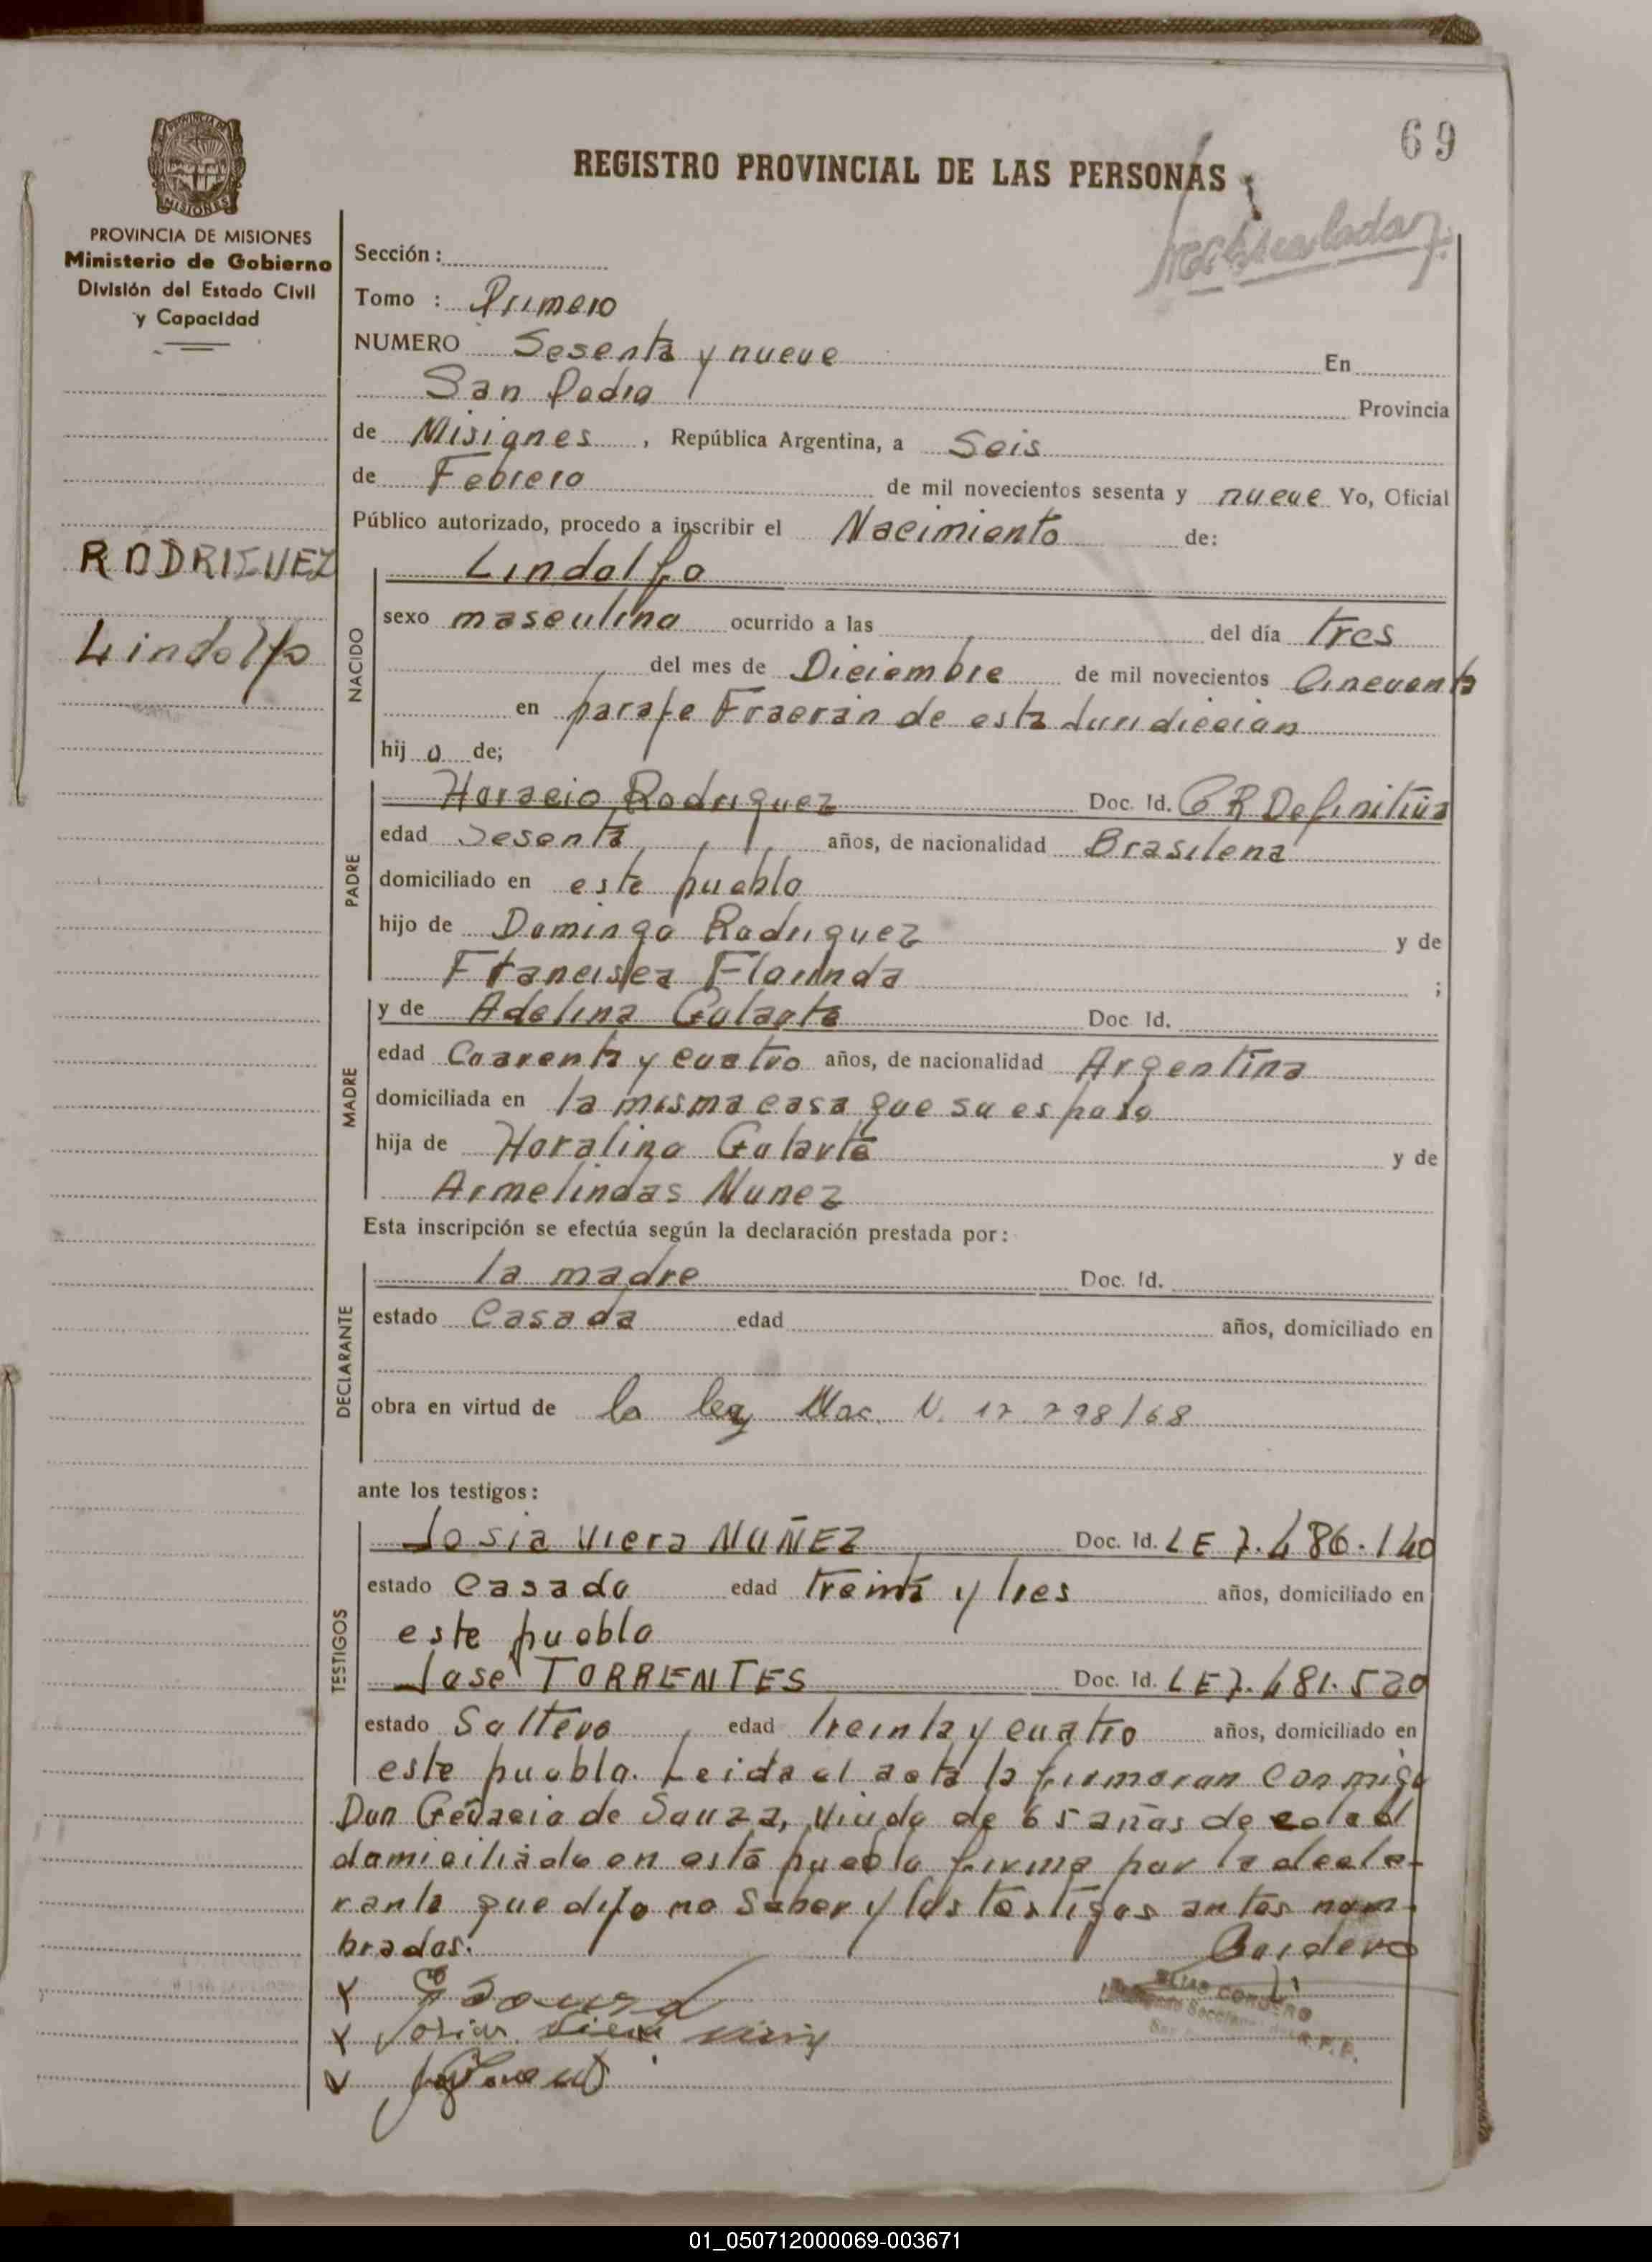 69
REGISTRO PROVINCIAL DE LAS PERSONAS
PROVINCIA DE MISIONES
MISIONES
PROVINCIA DE MISIONES
Ministerio de Gobierno
División del Estado Civil
y Capacidad
Sección:
Tomo : Primero
NUMERO Sesenta y nueve En
San Pedro Provincia
de Misiones, República Argentina, a Seis
de Febrero de mil novecientos sesenta y nueve Yo, Oficial
Público autorizado, procedo a inscribir el Nacimiento de:
RODRIGUEZ
Lindolfo
NACIDO
Lindolfo
sexo masculino ocurrido a las del día tres
del mes de Diciembre de mil novecientos Cincuenta
en paraje Fracrán de esta Juridiccion
hij o de;
PADRE
Horacio Rodriguez Doc. Id. CR Definitiva
edad Sesenta años, de nacionalidad Brasilena
domiciliado en este pueblo
hijo de Domingo Rodriguez y de
Francisca Florinda ;
MADRE
y de Adelina Gularte Doc Id.
edad Cuarenta y cuatro años, de nacionalidad Argentina
domiciliada en la misma casa que su esposo
hija de Horalino Gularte y de
Armelindas Nunez
Esta inscripción se efectúa según la declaración prestada por:
DECLARANTE
la madre Doc. Id.
estado Casada edad años, domiciliado en
obra en virtud de la ley Nac. N. 17.798/68
ante los testigos:
TESTIGOS
Josia Viera NUÑEZ Doc. Id. LE 7.486.140
estado Casado edad treinta y tres años, domiciliado en
este pueblo
José TORRENTES Doc. Id. LE 7.481.520
estado Soltero edad treinta y cuatro años, domiciliado en
este pueblo. Leida el acta la firmaran conmigo
Don Gervacio de Souza, Viudo de 65 años de edad
domiciliado en este pueblo firma por la decla-
rante que dijo no Saber y los testigos antes nom-
brados.
Cordero
ELIAS CORDERO
R. P. P.
01_050712000069-003671